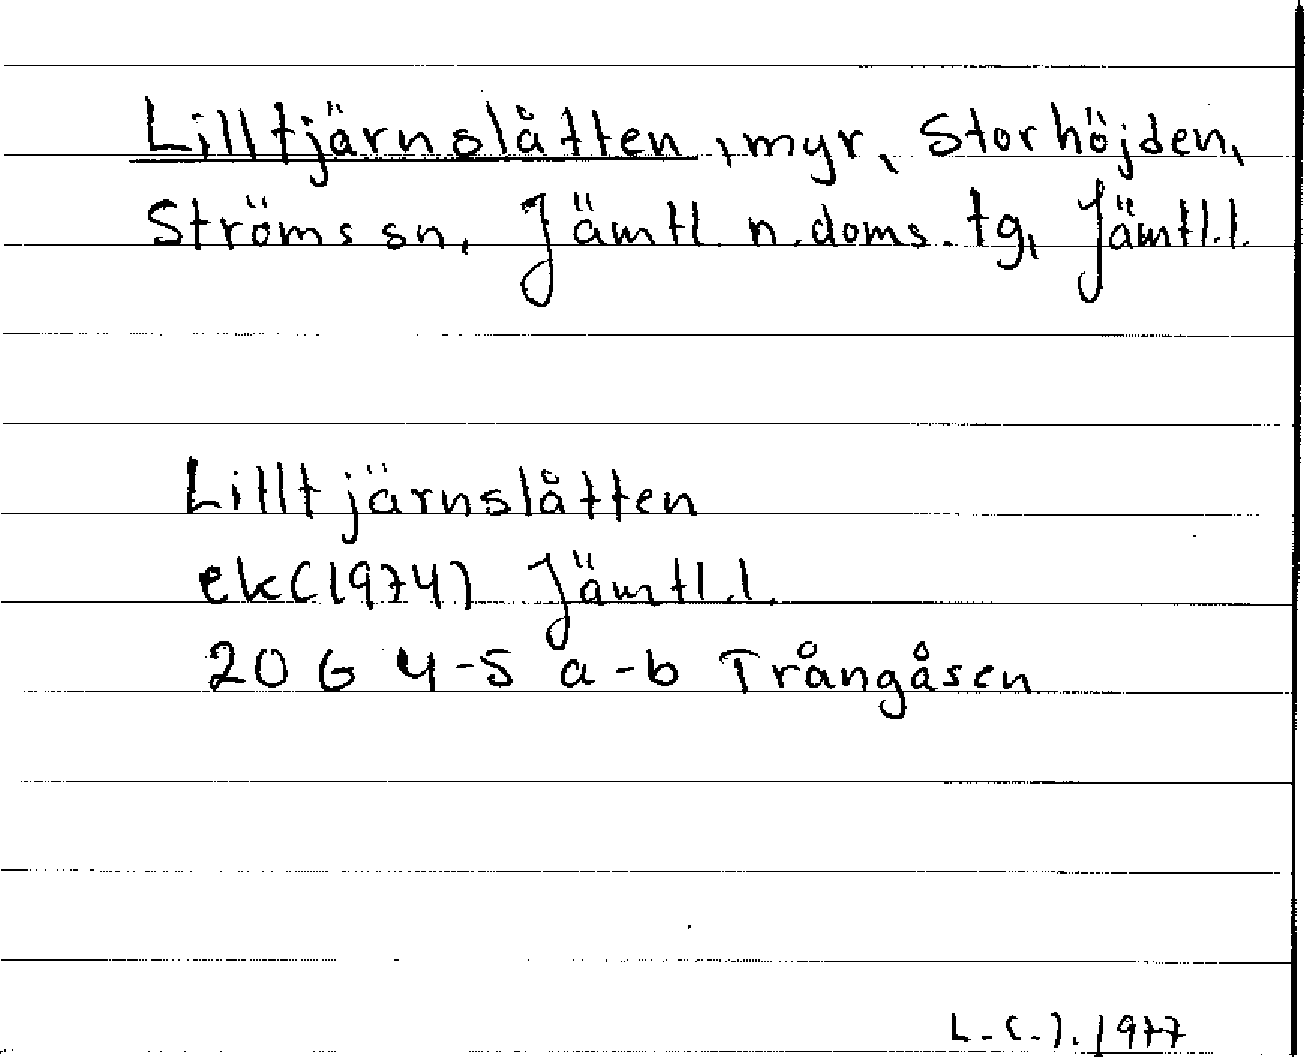 Lilltjärnslåtten, myr, Storhöjden,
Ströms sn, Jämtl. n. doms. tg, Jämtl. l.
Lilltjärnslåtten
ek(1974) Jämtl. l.
20 G 4-5 a-b Trångåsen
L.C.J. 1977